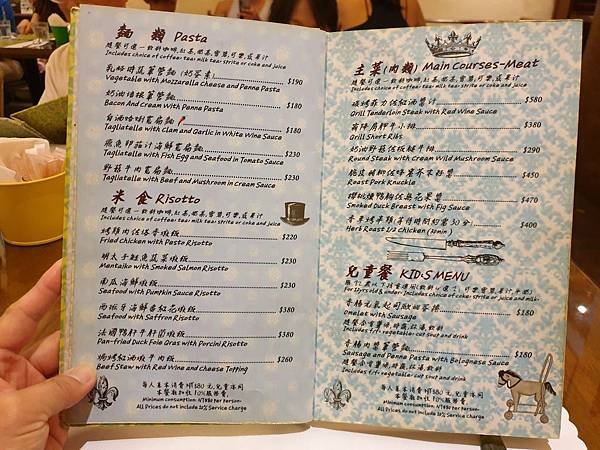 麵 類 Pasta
隨餐可選一飲料咖啡,紅茶,奶茶,雪碧,可樂,或果汁
Includes choice of coffee, tea, milk tea, sprite or coke and juice
Vegetable with Mozzarella Cheese and Penne Pasta
$190
奶油培根筆管麵
Bacon And Cream With Penne Pasta
$180
白酒蛤蜊寬扁麵
Tagliatelle with Clam and Garlic in White Wine Sauce
$180
飛魚卵茄汁海鮮寬扁麵
Tagliatelle with Fish Egg and Seafood in Tomato Sauce
$230
野菇牛肉寬扁麵
Tagliatelle with Beef and Mushroom in Cream Sauce
$230
米 食 Risotto
隨餐可選一飲料咖啡,紅茶,奶茶,雪碧,可樂,或果汁
Includes choice of coffee, tea, milk tea, sprite or coke and juice
Fried Chicken with Pasto Risotto
$220
明太子鮭魚蔬菜燉飯
Mentaiko with Smoked Salmon Risotto
$230
南瓜海鮮燉飯
Seafood with Pumpkin Sauce Risotto
$230
西班牙海鮮番紅花燉飯
Seafood with Saffron Risotto
$380
法國鴨肝牛肝菌燉飯
Pan-fried Duck Foie Gras with Porcini Risotto
$380
焗烤紅酒燉牛肉飯
Beef Stew with Red Wine and Cheese Topping
$260
本餐廳加收10%服務費
Minimum consumption: NT$80 per person.
All Prices do not include 10% Service Charge
主菜(肉類) Main Courses-Meat
隨餐可選一飲料咖啡,紅茶,奶茶,雪碧,可樂,或果汁
Includes choice of coffee, tea, milk tea, sprite or coke and juice
爐烤菲力佐紅酒醬汁
Grill Tenderloin Steak with Red Wine Sauce
$580
Grill Short Ribs
$380
Round Steak with Cream Wild Mushroom Sauce
$290
Roast Pork Knuckle
$450
櫻桃燻鴨胸佐無花果醬
Smoked Duck Breast with Fig Sauce
$470
香草烤半雞(等待時間約需30分)
Herb Roast 1/2 Chicken (30min)
$400
兒童餐 KID,S MENU
Omelet with Sausage
$180
Includes fries, vegetable, cut fruit and drink
Sausage and Penne Pasta with Bolognese Sauce
$180
Includes fries, vegetable, cut fruit and drink
本餐廳加收10%服務費
Minimum consumption: NT$80 per person.
All Prices do not include 10% Service Charge